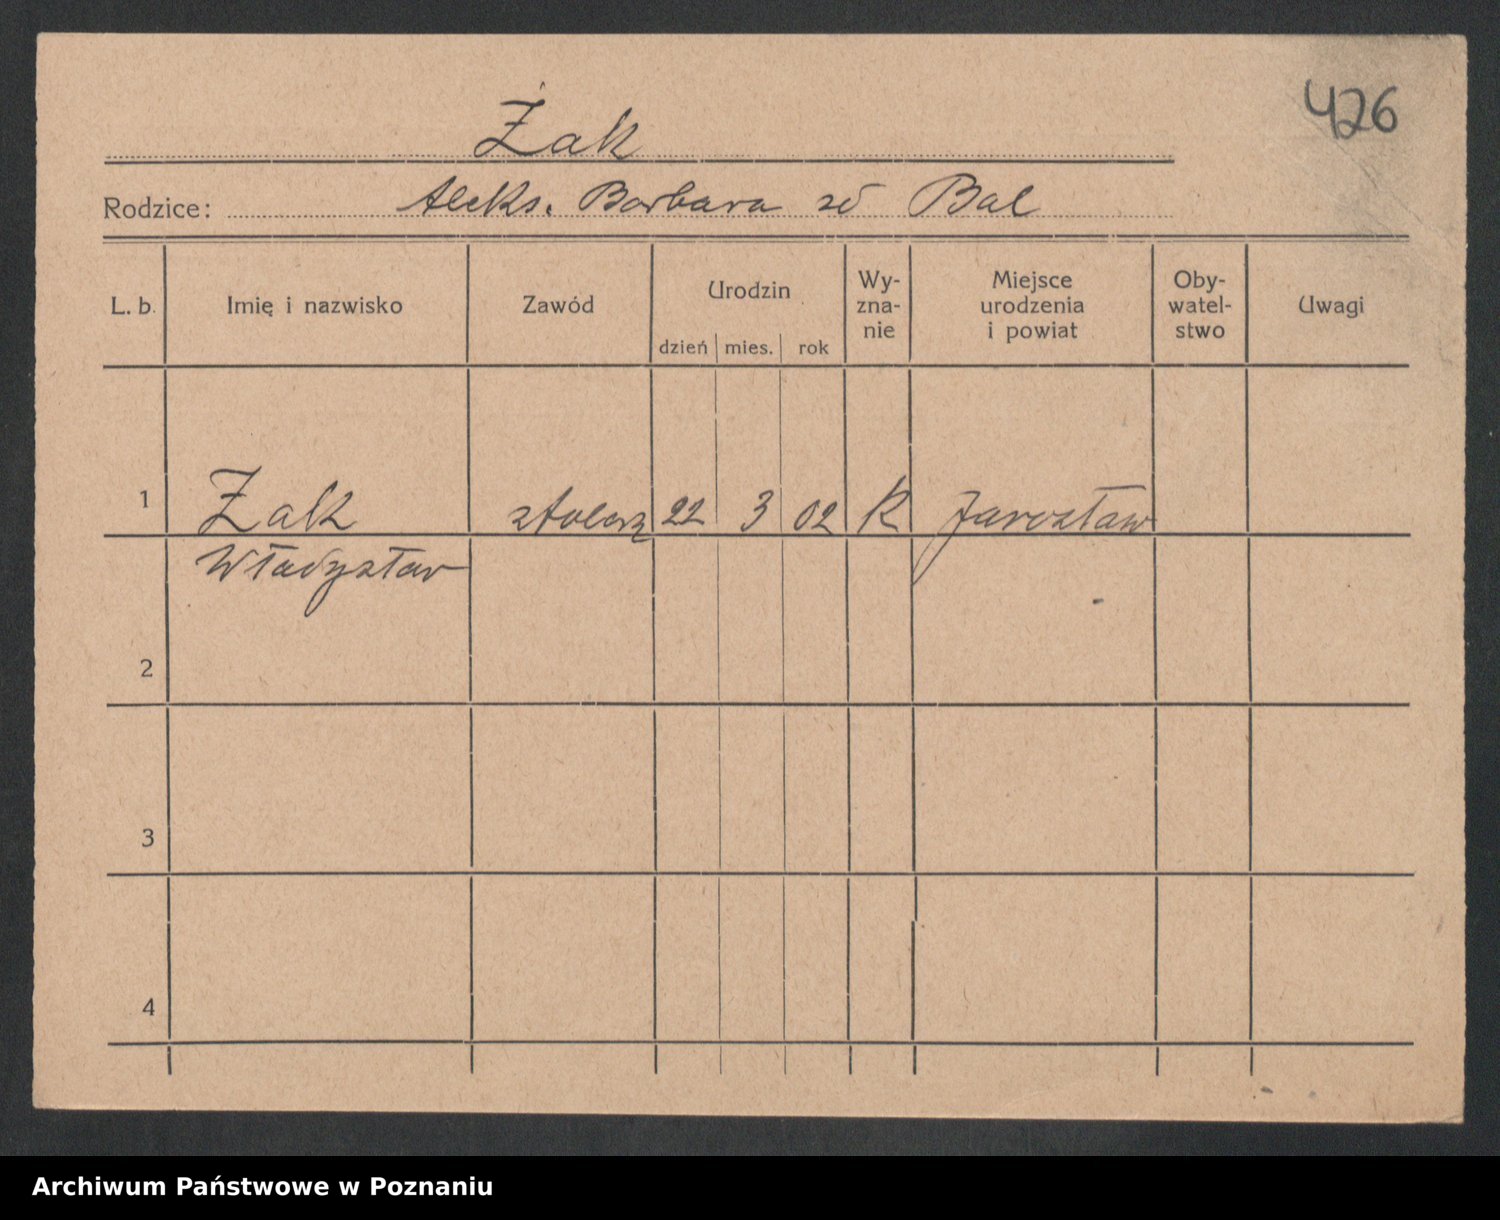 426
Żak
Rodzice: Aleks. Barbara zd Bal
L. b. Imię i nazwisko Zawód Urodzin dzień mies. rok Wy-zna-nie Miejsce urodzenia i powiat Oby-watel-stwo Uwagi
1 Żak stolarz 22 3 02 R Jarosław
Władysław
2
3
4
Archiwum Państwowe w Poznaniu